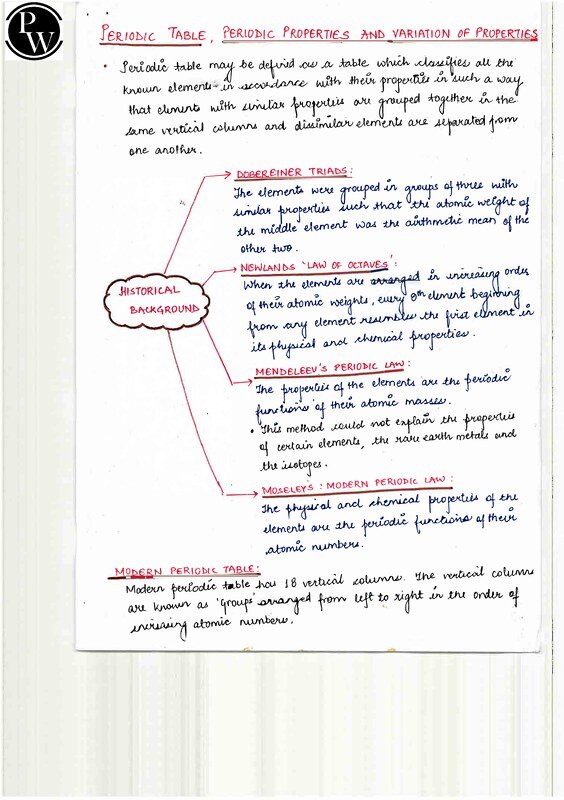 PW
PERIODIC TABLE, PERIODIC PROPERTIES AND VARIATION OF PROPERTIES
• Periodic table may be defined as a table which classifies all the
known elements in accordance with their properties in such a way
that elements with similar properties are grouped together in the
same vertical columns and dissimilar elements are separated from
one another.
HISTORICAL
BACKGROUND
DOBEREINER TRIADS:
The elements were grouped in groups of three with
similar properties such that the atomic weight of
the middle element was the airthmetic mean of the
other two.
NEWLANDS 'LAW OF OCTAVES':
When the elements are arranged in increasing order
of their atomic weights, every 8th element beginning
from any element resembles the first element in
its physical and chemical properties.
MENDELEEV'S PERIODIC LAW:
The properties of the elements are the periodic
functions of their atomic masses.
• This method could not explain the properties
of certain elements, the rare earth metals and
the isotopes.
MOSELEYS: MODERN PERIODIC LAW:
The physical and chemical properties of the
elements are the periodic functions of their
atomic numbers.
MODERN PERIODIC TABLE:
Modern periodic table has 18 vertical columns. The vertical columns
are known as 'groups' arranged from left to right in the order of
increasing atomic numbers.